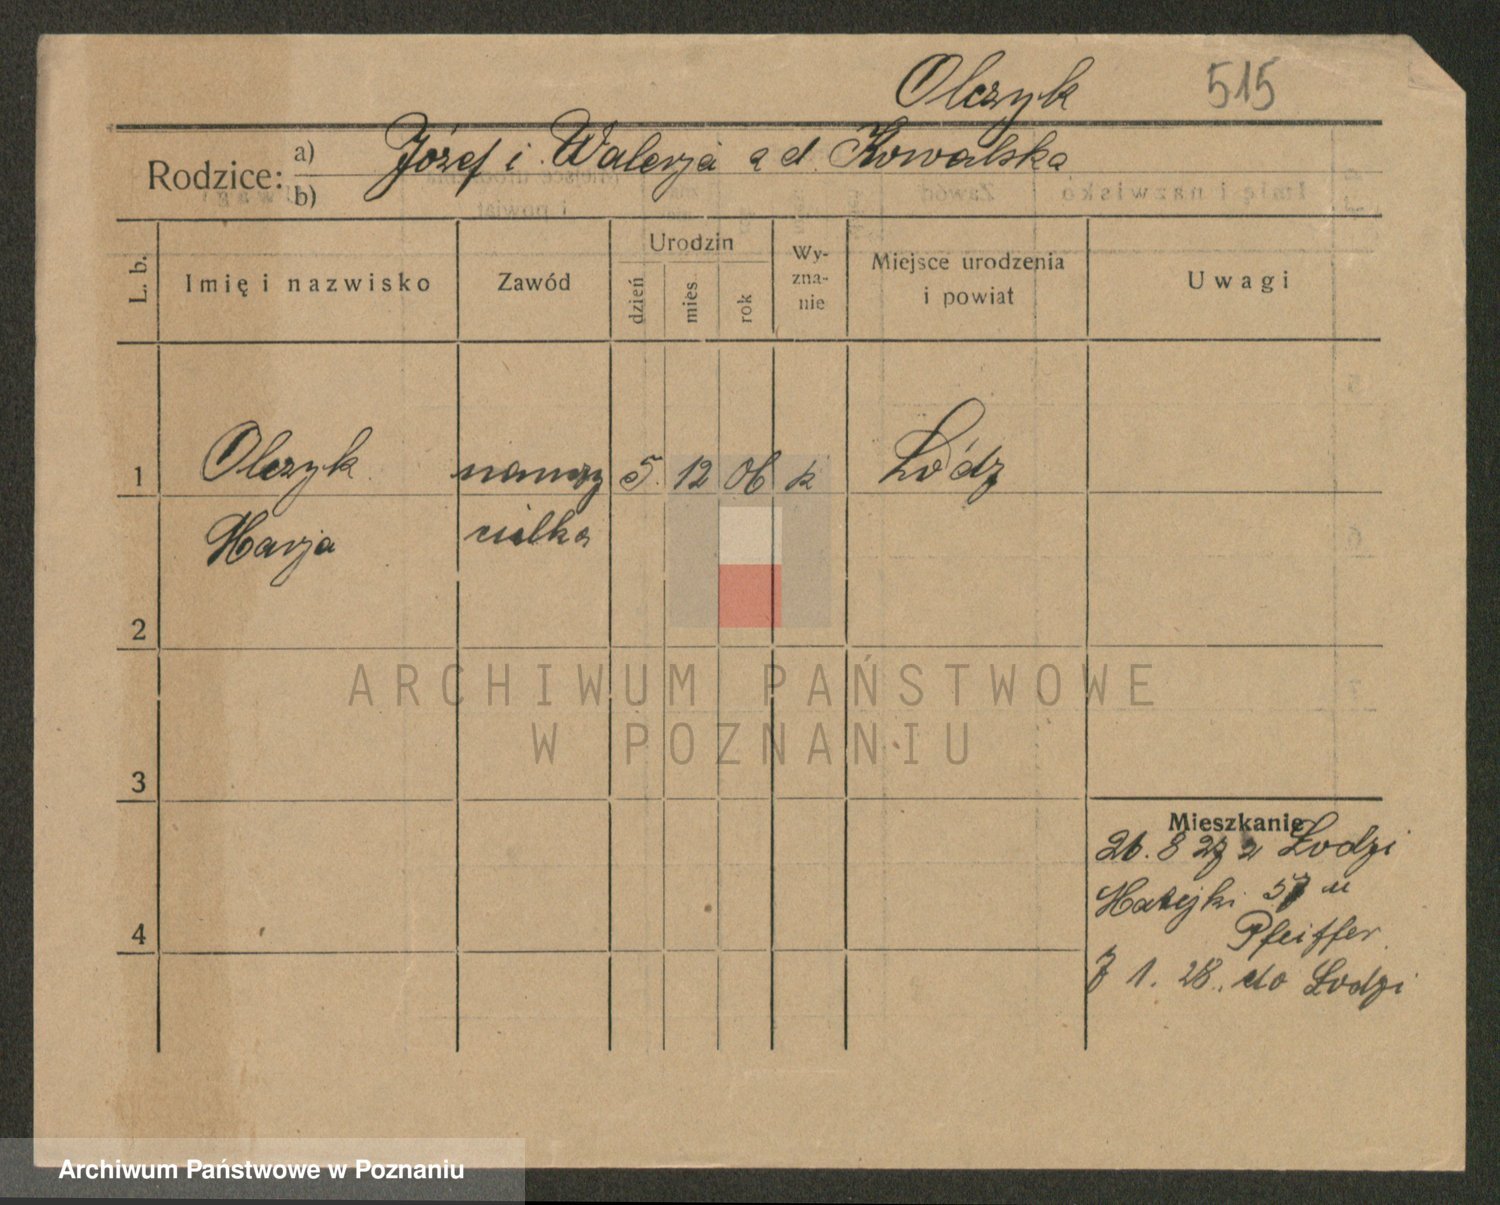 Olczyk 515
Rodzice: a) Józef i Walerja z d. Kowalska
b)
L. b. Imię i nazwisko Zawód Urodzin dzień mies. rok Wy-zna-nie Miejsce urodzenia i powiat Uwagi
1 Olczyk nauczy 5. 12 06 k Łódz
Marja cielka
2
ARCHIWUM PAŃSTWOWE
W POZNANIU
3
Mieszkanie
26. 8 27 z Łodzi
Matejki 57 u
Pfeiffer
4
7 1. 28. do Łodzi
Archiwum Państwowe w Poznaniu